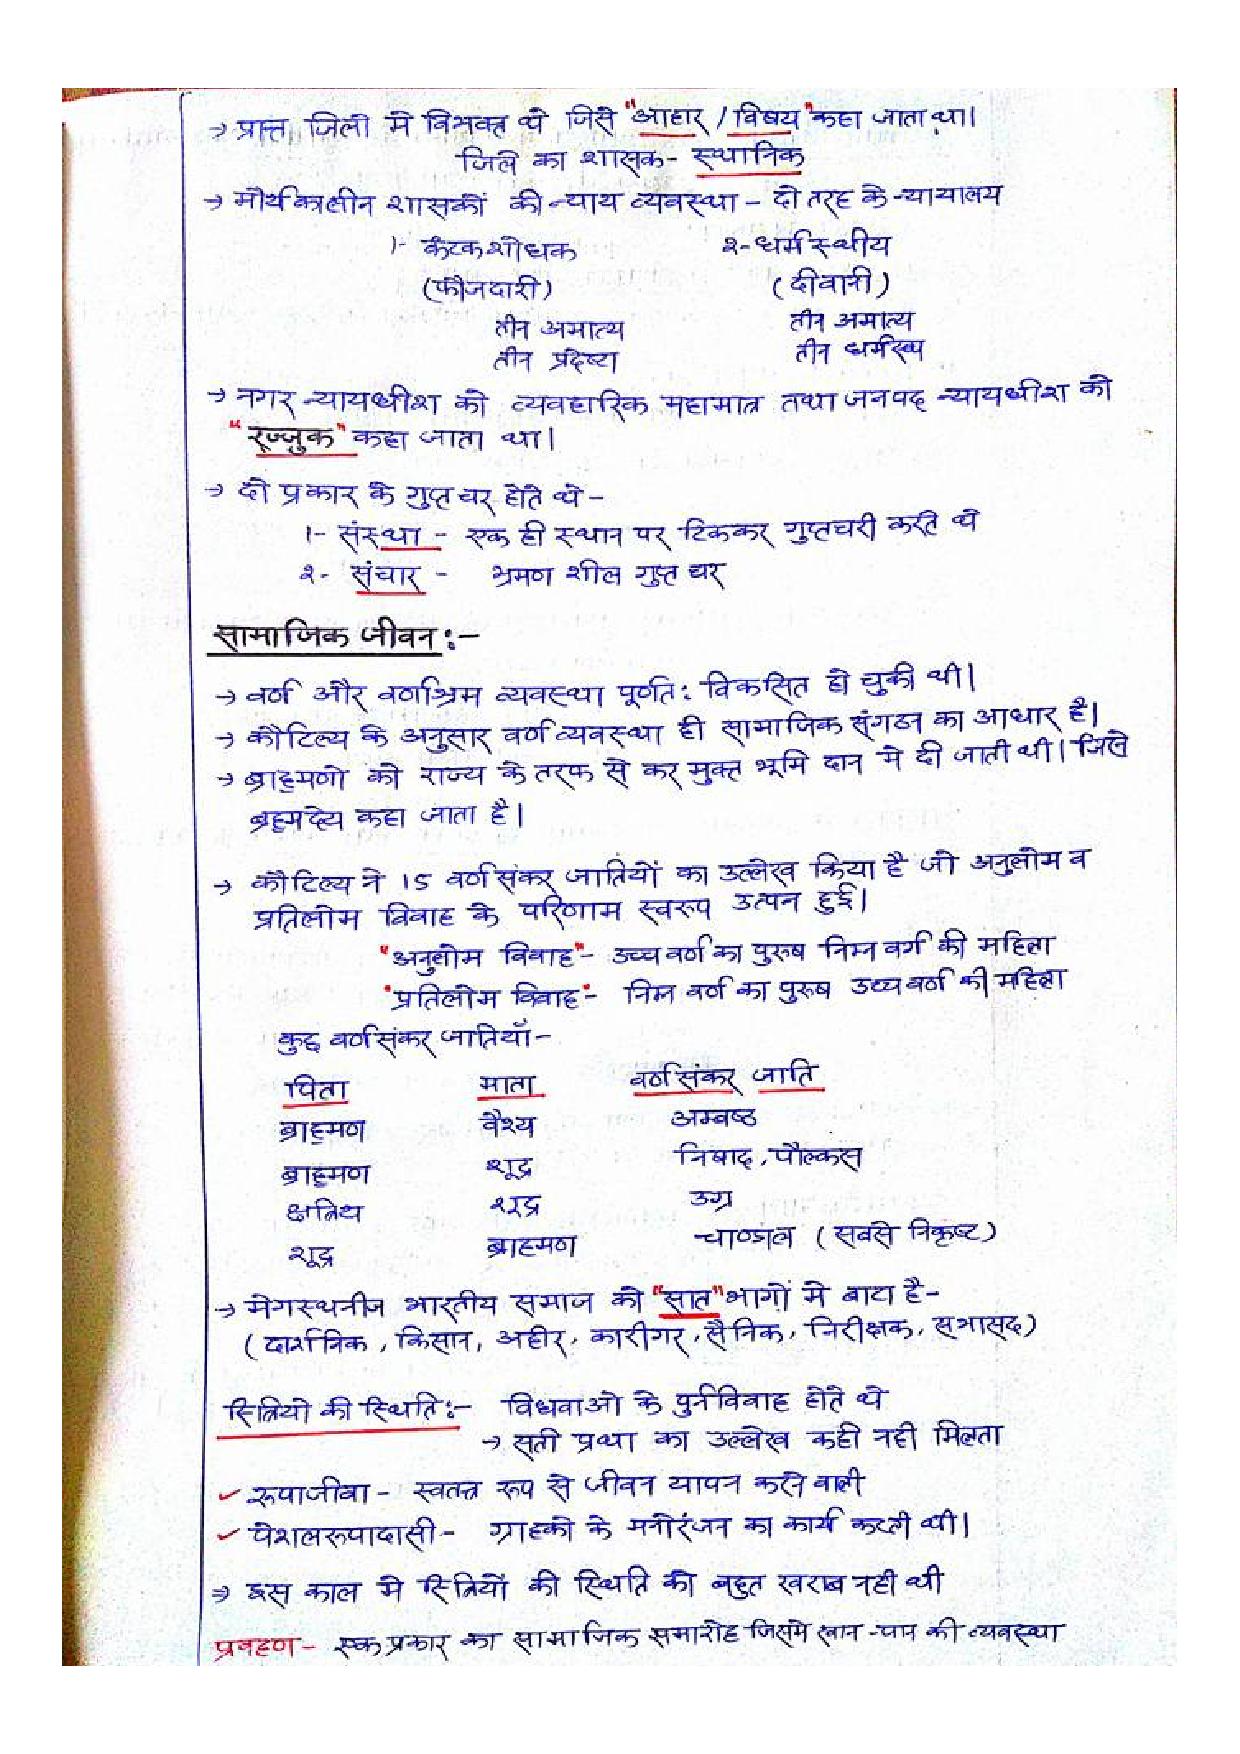 → प्रान्त जिलों मे विभक्त थे जिसे "आहार / विषय" कहा जाता था।
जिले का शासक- स्थानिक
→ मौर्यकालीन शासकों की न्याय व्यवस्था - दो तरह के न्यायालय
1- कंटकशोधक २- धर्मस्थीय
(फौजदारी) (दीवानी)
तीन अमात्य तीन अमात्य
तीन प्रदेष्टा तीन धर्मस्थ
→ नगर न्यायधीश को व्यवहारिक महामात्र तथा जनपद न्यायधीश को
"रज्जुक" कहा जाता था।
→ दो प्रकार के गुप्तचर होते थे -
1- संस्था - एक ही स्थान पर टिककर गुप्तचरी करते थे
२- संचार - भ्रमण शील गुप्तचर
सामाजिक जीवन :-
→ वर्ण और वर्णाश्रम व्यवस्था पूर्णतः विकसित हो चुकी थी।
→ कौटिल्य के अनुसार वर्ण व्यवस्था ही सामाजिक संगठन का आधार है।
→ ब्राह्मणो को राज्य के तरफ से कर मुक्त भूमि दान मे दी जाती थी। जिसे
ब्रह्मदेय कहा जाता है।
→ कौटिल्य ने 15 वर्णसंकर जातियों का उल्लेख किया है जो अनुलोम व
प्रतिलोम विवाह के परिणाम स्वरूप उत्पन हुई।
"अनुलोम विवाह"- उच्च वर्ण का पुरुष निम्न वर्ग की महिला
"प्रतिलोम विवाह"- निम्न वर्ण का पुरुष उच्च वर्ण की महिला
कुछ वर्णसंकर जातियाँ -
पिता माता वर्णसंकर जाति
ब्राह्मण वैश्य अम्बष्ठ
ब्राह्मण शूद्र निषाद, पौल्कस
क्षत्रिय शूद्र उग्र
शूद्र ब्राह्मण चाण्डाल (सबसे निकृष्ट)
→ मेगस्थनीज भारतीय समाज को "सात" भागों मे बाटा है -
(दार्शनिक, किसान, अहीर, कारीगर, सैनिक, निरीक्षक, सभासद)
स्त्रियो की स्थिति :- विधवाओ के पुर्नविवाह होते थे
→ सती प्रथा का उल्लेख कही नही मिलता
✓ रूपाजीवा - स्वतन्त्र रूप से जीवन यापन करने वाली
✓ पेशलरूपादासी - ग्राहको के मनोरंजन का कार्य करती थी।
⇒ इस काल मे स्त्रियों की स्थिति की बहुत खराब नही थी
प्रवहण - एक प्रकार का सामाजिक समारोह जिसमे खान-पान की व्यवस्था